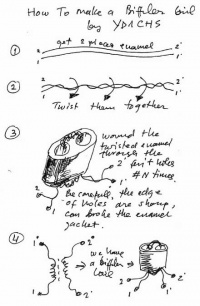 How To Make a Bifilar Coil
by YD1CHS
1
get 2 pieces enamel
2 2'
1 1'
2
2 2'
1 1'
Twist them together
3
wound the
twisted enamel
through the
2' holes
#N times.
1'
1 2
Be careful, the edge
of holes are sharp,
can broke the enamel
jacket.
4
2 2'
we have
a bifilar
coil
1 1'
2 2'
1 1'